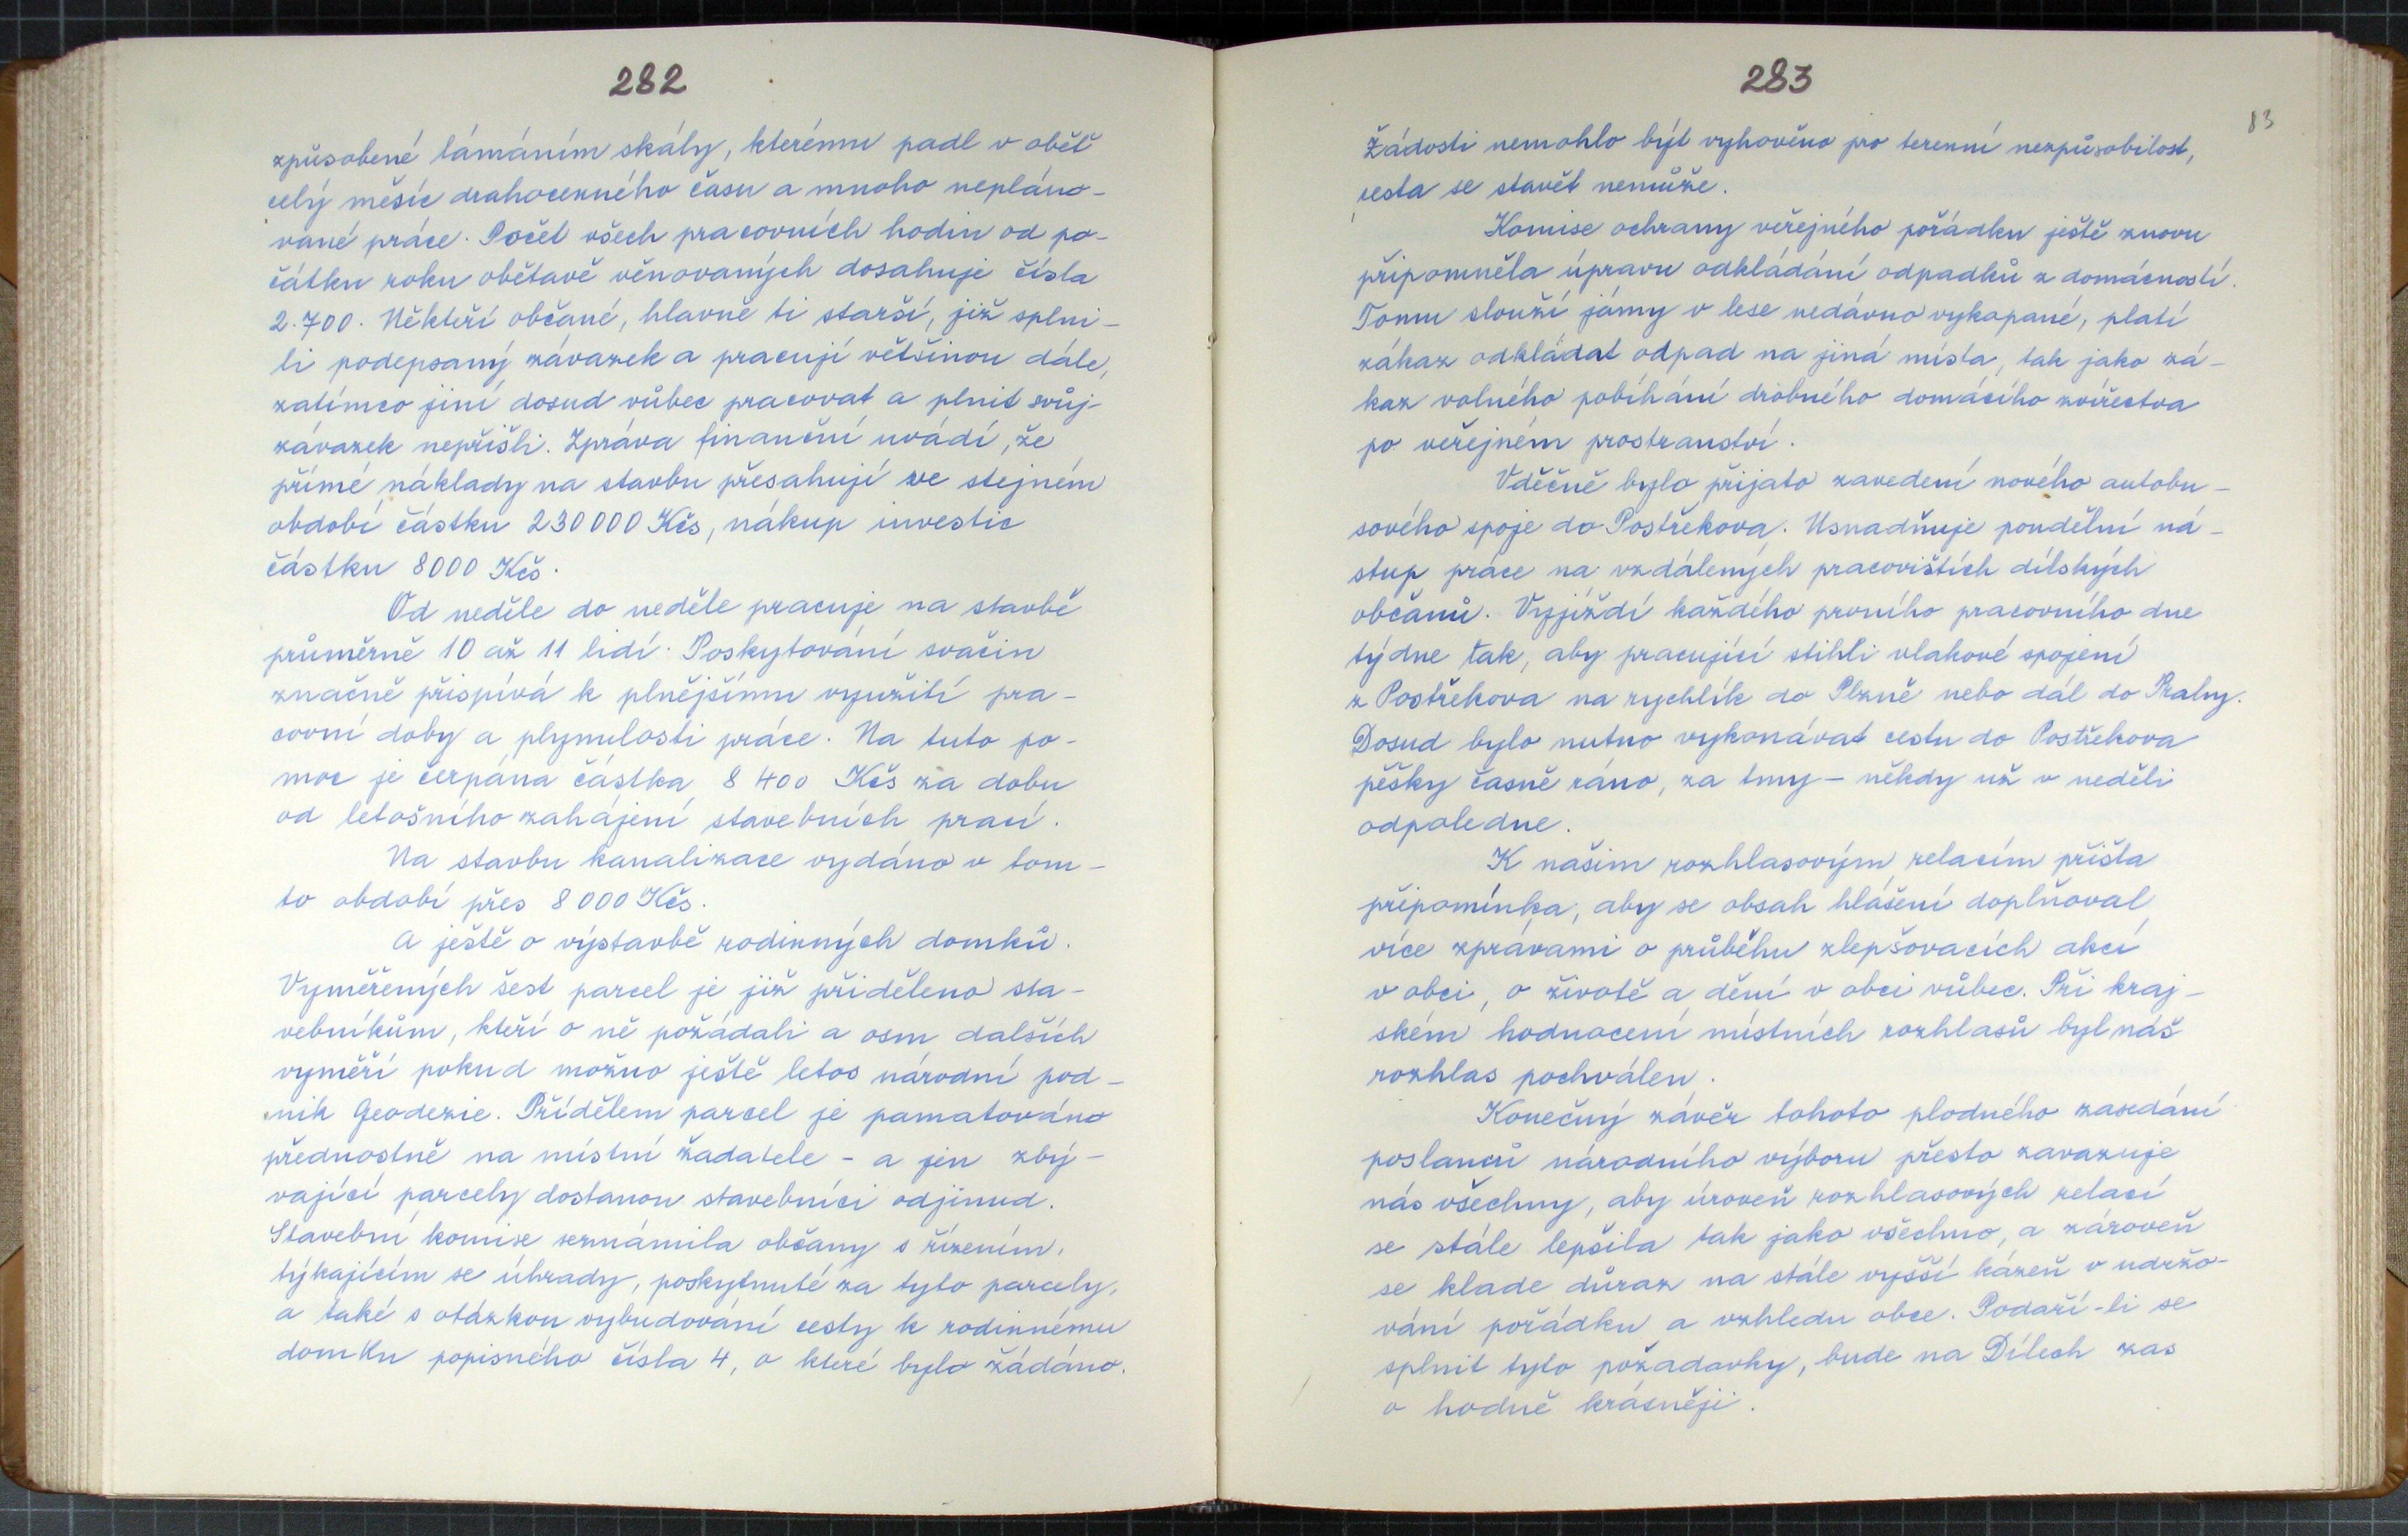 282
způsobené lámáním skály, kterému padl v oběť
celý měsíc drahocenného času a mnoho nepláno-
vané práce. Počet všech pracovních hodin od po-
čátku roku obětavě věnovaných dosahuje čísla
2.700. Někteří občané, hlavně ti starší, již splni-
li podepsaný závazek a pracují většinou dále,
zatímco jiní dosud vůbec pracovat a plnit svůj
závazek nepřišli. Zpráva finanční uvádí, že
přímé náklady na stavbu přesahují ve stejném
období částku 230000 Kčs, nákup investic
částku 8000 Kčs.
Od neděle do neděle pracuje na stavbě
průměrně 10 až 11 lidí. Poskytování svačin
značně přispívá k plnějšímu využití pra-
covní doby a plynulosti práce. Na tuto po-
moc je čerpána částka 8 400 Kčs za dobu
od letošního zahájení stavebních prací.
Na stavbu kanalizace vydáno v tom-
to období přes 8 000 Kčs.
A ještě o výstavbě rodinných domků.
Vyměřených šest parcel je již přiděleno sta-
vebníkům, kteří o ně požádali a osm dalších
vyměří pokud možno ještě letos národní pod-
nik Geodezie. Přídělem parcel je pamatováno
přednostně na místní žadatele - a jen zbý-
vající parcely dostanou stavebníci odjinud.
Stavební komise seznámila občany s řízením,
týkajícím se úhrady, poskytnuté za tyto parcely,
a také s otázkou vybudování cesty k rodinnému
domku popisného čísla 4, o které bylo žádáno.
283
83
Žádosti nemohlo být vyhověno pro terenní nezpůsobilost,
cesta se stavět nemůže.
Komise ochrany veřejného pořádku ještě znovu
připomněla úpravu odkládání odpadků z domácností.
Tomu slouží jámy v lese nedávno vykopané, platí
zákaz odkládat odpad na jiná místa, tak jako zá-
kaz volného pobíhání drobného domácího zvířectva
po veřejném prostranství.
Vděčně bylo přijato zavedení nového autobu-
sového spoje do Postřekova. Usnadňuje pondělní ná-
stup práce na vzdálených pracovištích dílských
občanů. Vyjíždí každého prvního pracovního dne
týdne tak, aby pracující stihli vlakové spojení
z Postřekova na rychlík do Plzně nebo dál do Prahy.
Dosud bylo nutno vykonávat cestu do Postřekova
pěšky časně ráno, za tmy - někdy už v neděli
odpoledne.
K našim rozhlasovým relacím přišla
připomínka, aby se obsah hlášení doplňoval
více zprávami o průběhu zlepšovacích akcí
v obci, o životě a dění v obci vůbec. Při kraj-
ském hodnocení místních rozhlasů byl náš
rozhlas pochválen.
Konečný závěr tohoto plodného zasedání
poslanců národního výboru přesto zavazuje
nás všechny, aby úroveň rozhlasových relací
se stále lepšila tak jako všechno, a zároveň
se klade důraz na stále vyšší kázeň v udržo-
vání pořádku a vzhledu obce. Podaří-li se
splnit tyto požadavky, bude na Dílech zas
o hodně krásněji.